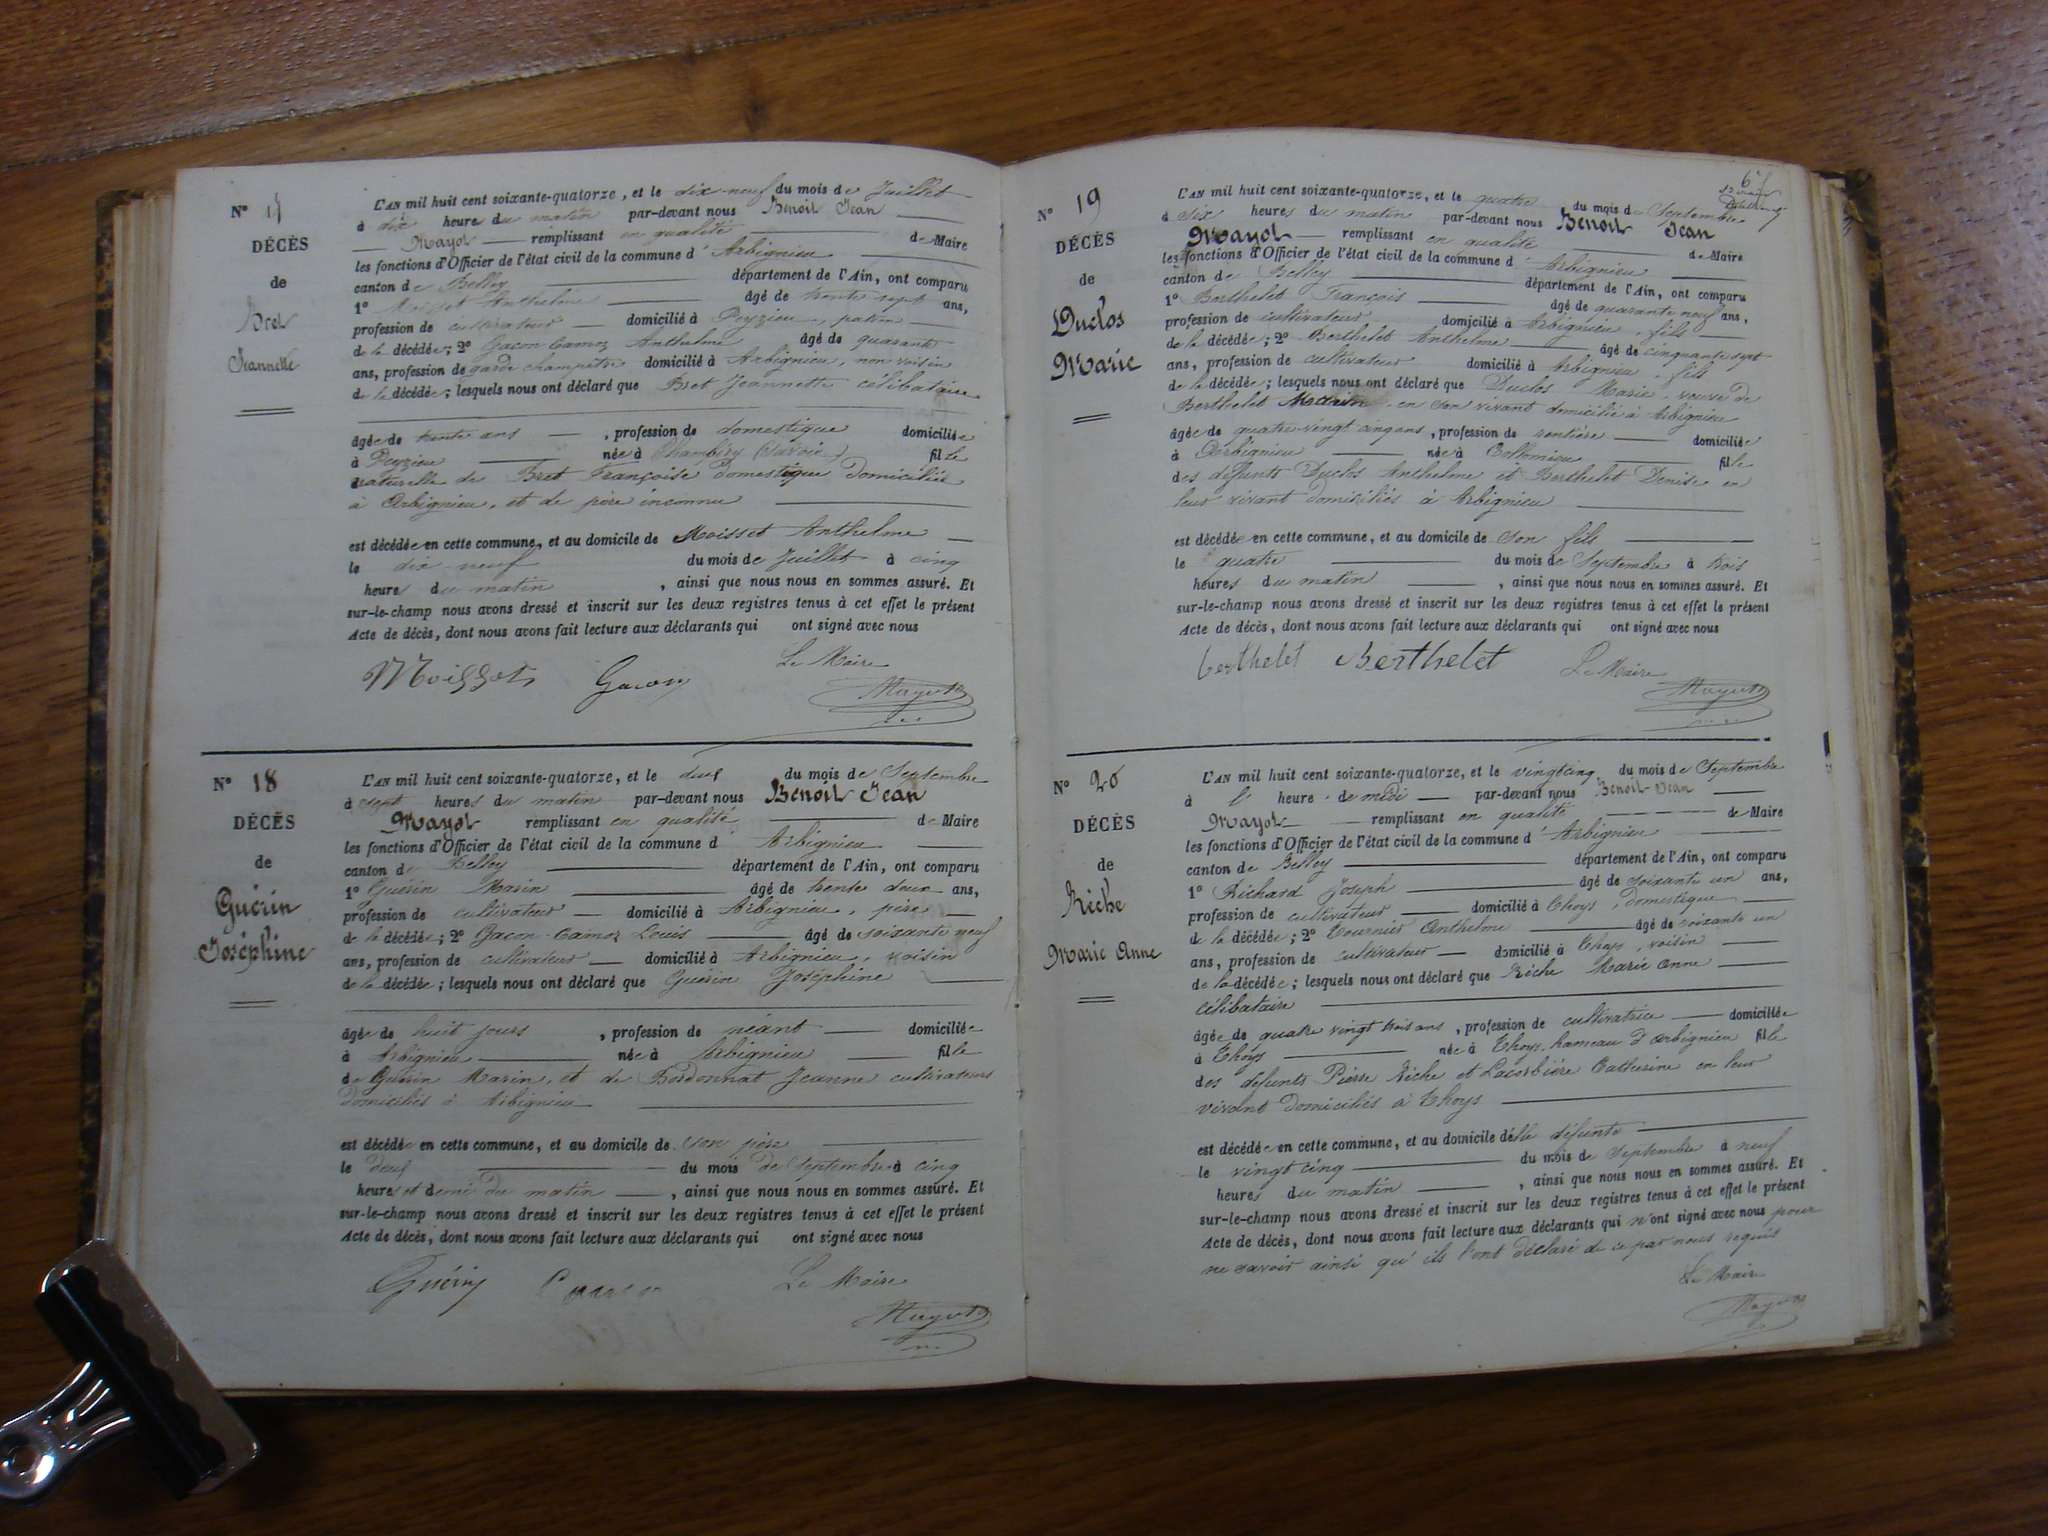 N° 17
DÉCÈS
de
Bret
Jeannette
L'AN mil huit cent soixante-quatorze, et le dix-neuf du mois de Juillet
à dix heures du matin par-devant nous Benoit Jean
Mayot remplissant en qualité de Maire
les fonctions d'Officier de l'état civil de la commune d'Arbignieu
canton de Belley département de l'Ain, ont comparu
1° Moisset Anthelme âgé de trente sept ans,
profession de cultivateur domicilié à Peyzieu, patron
de la décédée; 2° Gacon Camoz Anthelme âgé de quarante
ans, profession de garde champêtre domicilié à Arbignieu, non voisin
de la décédée; lesquels nous ont déclaré que Bret Jeannette célibataire
âgée de trente ans, profession de domestique domiciliée
à Peyzieu née à Chambéry (Savoie) fille
naturelle de Bret Françoise domestique domiciliée
à Arbignieu, et de père inconnu
est décédée en cette commune, et au domicile de Moisset Anthelme
le dix neuf du mois de Juillet à cinq
heures du matin, ainsi que nous nous en sommes assuré. Et
sur-le-champ nous avons dressé et inscrit sur les deux registres tenus à cet effet le présent
Acte de décès, dont nous avons fait lecture aux déclarants qui ont signé avec nous
Le Maire
Moisset Gacon Mayot
N° 18
DÉCÈS
de
Guérin
Joséphine
L'AN mil huit cent soixante-quatorze, et le deux du mois de Septembre
à sept heures du matin par-devant nous Benoit Jean
Mayot remplissant en qualité de Maire
les fonctions d'Officier de l'état civil de la commune d'Arbignieu
canton de Belley département de l'Ain, ont comparu
1° Guérin Marin âgé de trente deux ans,
profession de cultivateur domicilié à Arbignieu, père
de la décédée; 2° Gacon-Camoz Louis âgé de soixante neuf
ans, profession de cultivateur domicilié à Arbignieu, voisin
de la décédée; lesquels nous ont déclaré que Guérin Joséphine
âgée de huit jours, profession de néant domiciliée
à Arbignieu née à Arbignieu fille
de Guérin Marin, et de Bordonnat Jeanne cultivateurs
domiciliés à Arbignieu
est décédée en cette commune, et au domicile de son père
le deux du mois de Septembre à cinq
heures et demi du matin, ainsi que nous nous en sommes assuré. Et
sur-le-champ nous avons dressé et inscrit sur les deux registres tenus à cet effet le présent
Acte de décès, dont nous avons fait lecture aux déclarants qui ont signé avec nous
Guérin Le Maire
Mayot
N° 19
DÉCÈS
de
Duclos
Marie
L'AN mil huit cent soixante-quatorze, et le quatre du mois de Septembre
à six heures du matin par-devant nous Benoit Jean
Mayot remplissant en qualité de Maire
les fonctions d'Officier de l'état civil de la commune d'Arbignieu
canton de Belley département de l'Ain, ont comparu
1° Berthelet François âgé de quarante neuf ans,
profession de cultivateur domicilié à Arbignieu, fils
de la décédée; 2° Berthelet Anthelme âgé de cinquante sept
ans, profession de cultivateur domicilié à Arbignieu, fils
de la décédée; lesquels nous ont déclaré que Duclos Marie, veuve de
Berthelet en son vivant domicilié à Arbignieu
âgée de quatre-vingt cinq ans, profession de rentière domiciliée
à Arbignieu née à Collomieu fille
des défunts Duclos Anthelme et Berthelet Denise en
leur vivant domiciliés à Arbignieu
est décédée en cette commune, et au domicile de son fils
le quatre du mois de Septembre à trois
heures du matin, ainsi que nous nous en sommes assuré. Et
sur-le-champ nous avons dressé et inscrit sur les deux registres tenus à cet effet le présent
Acte de décès, dont nous avons fait lecture aux déclarants qui ont signé avec nous
berthelet Berthelet Le Maire
Mayot
N° 20
DÉCÈS
de
Riche
Marie Anne
L'AN mil huit cent soixante-quatorze, et le vingt cinq du mois de Septembre
à l' heure de midi par-devant nous Benoit Jean
Mayot remplissant en qualité de Maire
les fonctions d'Officier de l'état civil de la commune d'Arbignieu
canton de Belley département de l'Ain, ont comparu
1° Richard Joseph âgé de soixante un ans,
profession de cultivateur domicilié à Thoys, domestique
de la décédée; 2° Tournier Anthelme âgé de soixante un
ans, profession de cultivateur domicilié à Thoys, voisin
de la décédée; lesquels nous ont déclaré que Riche Marie Anne
célibataire
âgée de quatre vingt trois ans, profession de cultivatrice domiciliée
à Thoys née à Thoys, hameau d'Arbignieu fille
des défunts Pierre Riche et Lacorbière Catherine en leur
vivant domiciliés à Thoys
est décédée en cette commune, et au domicile de la défunte
le vingt cinq du mois de Septembre à neuf
heures du matin, ainsi que nous nous en sommes assuré. Et
sur-le-champ nous avons dressé et inscrit sur les deux registres tenus à cet effet le présent
Acte de décès, dont nous avons fait lecture aux déclarants qui n'ont signé avec nous pour
ne savoir ainsi qu'ils l'ont déclaré de ce par nous requis
Le Maire
Mayot